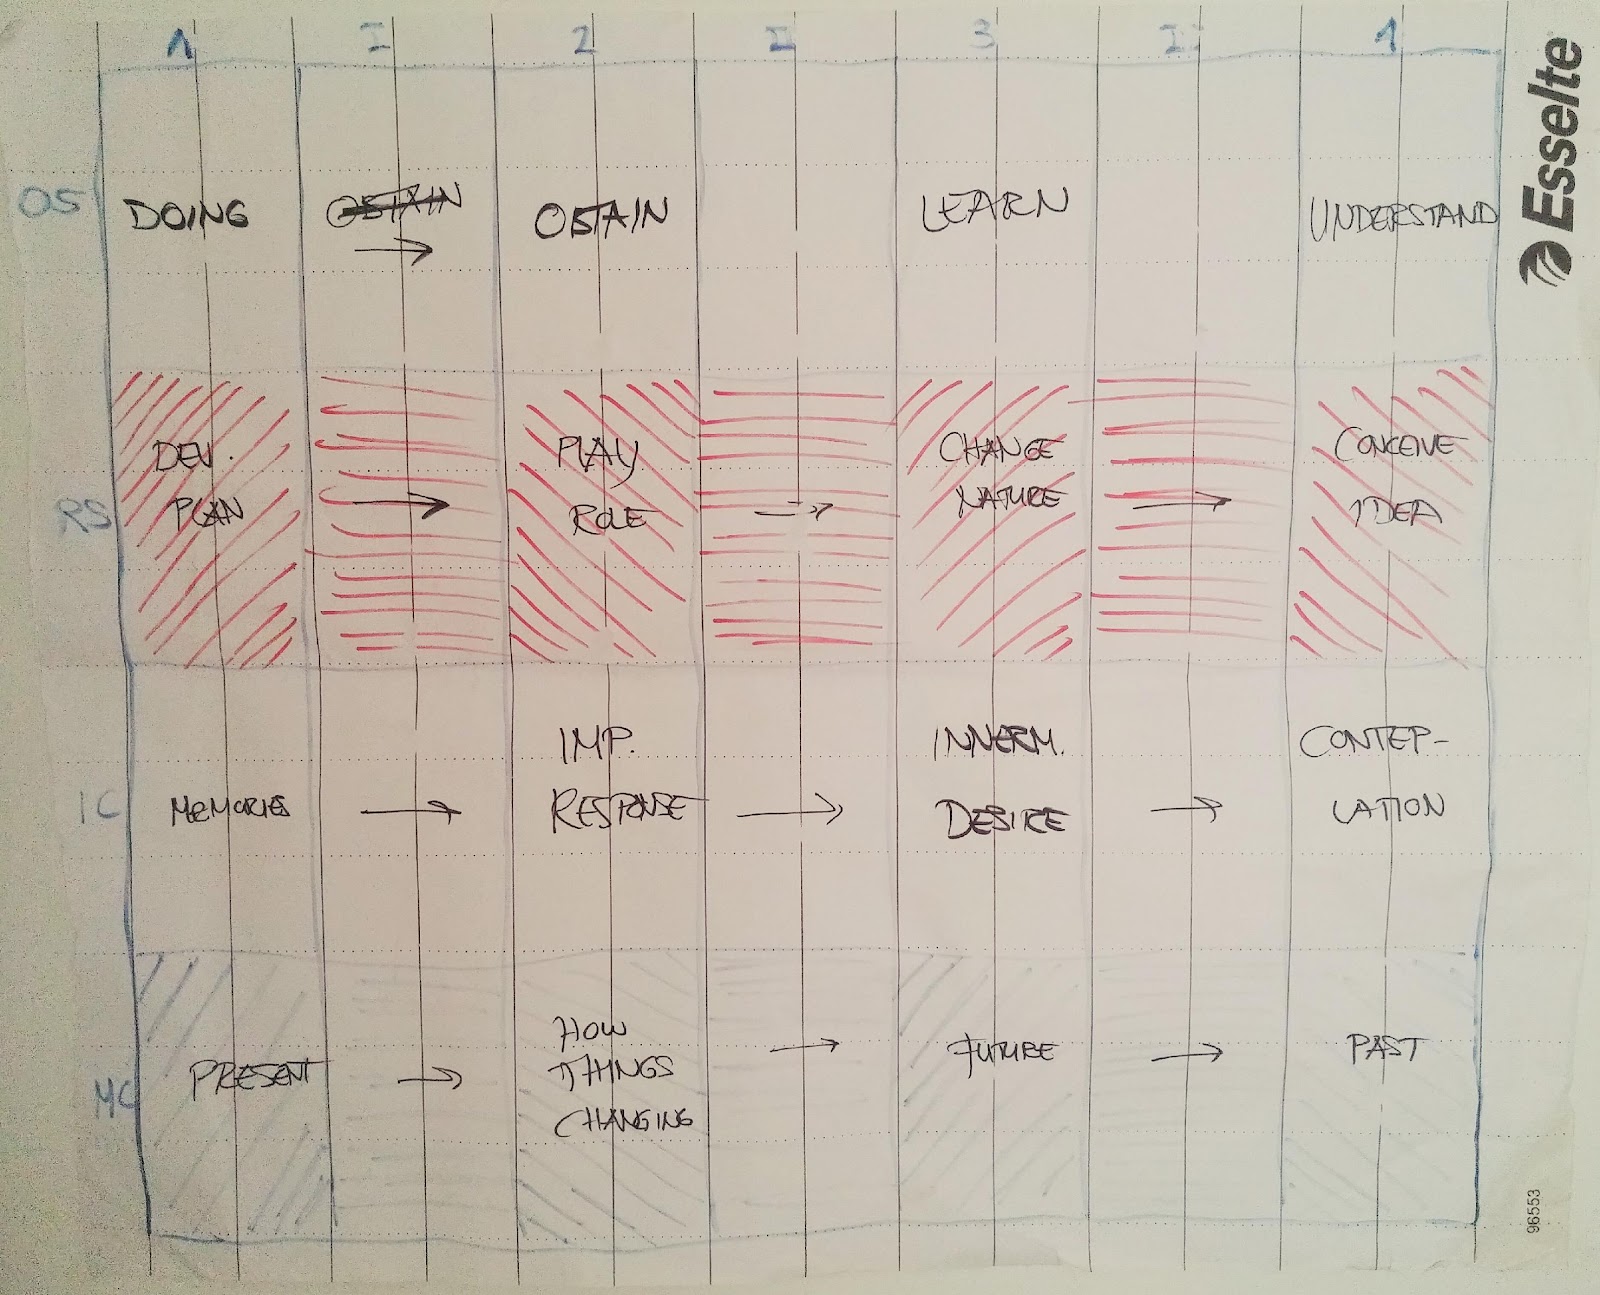 1 I 2 II 3 I 1
OS DOING OBTAIN OBTAIN LEARN UNDERSTAND
RS DEV. PLAY CHANGE CONCEIVE
PLAN ROLE NATURE IDEA
IMP. INNERM. CONTEP-
IC MEMORIES RESPONSE DESIRE LATION
HOW
MC PRESENT THINGS FUTURE PAST
CHANGING
Esselte
96553